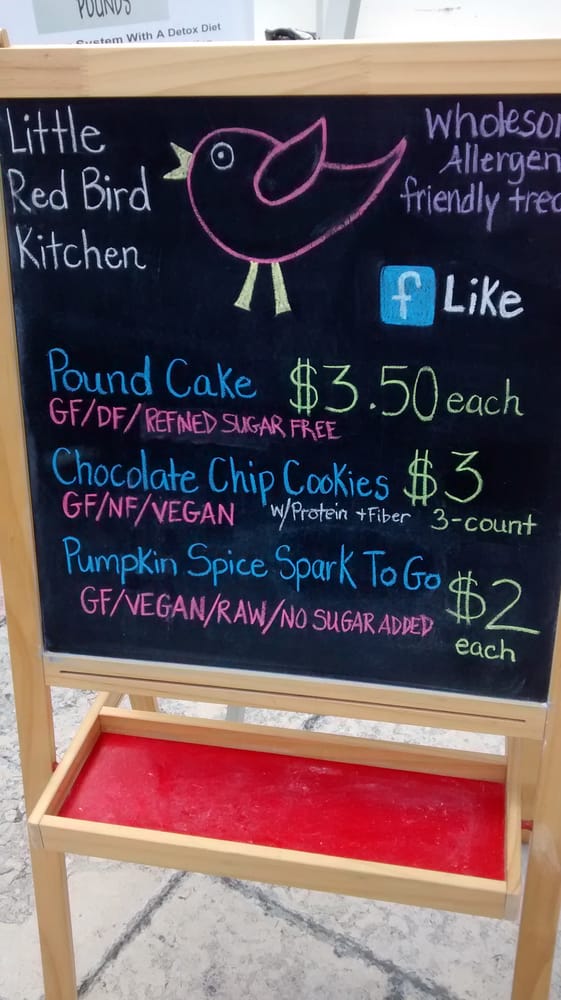 POUNDS
System With A Detox Diet
Little
Red Bird
Kitchen
Allergen
friendly
f Like
Pound Cake $3.50 each
GF/DF/REFINED SUGAR FREE
Chocolate Chip Cookies $3
GF/NF/VEGAN w/Protein + Fiber 3-count
Pumpkin Spice Spark To Go $2
GF/VEGAN/RAW/NO SUGAR ADDED
each